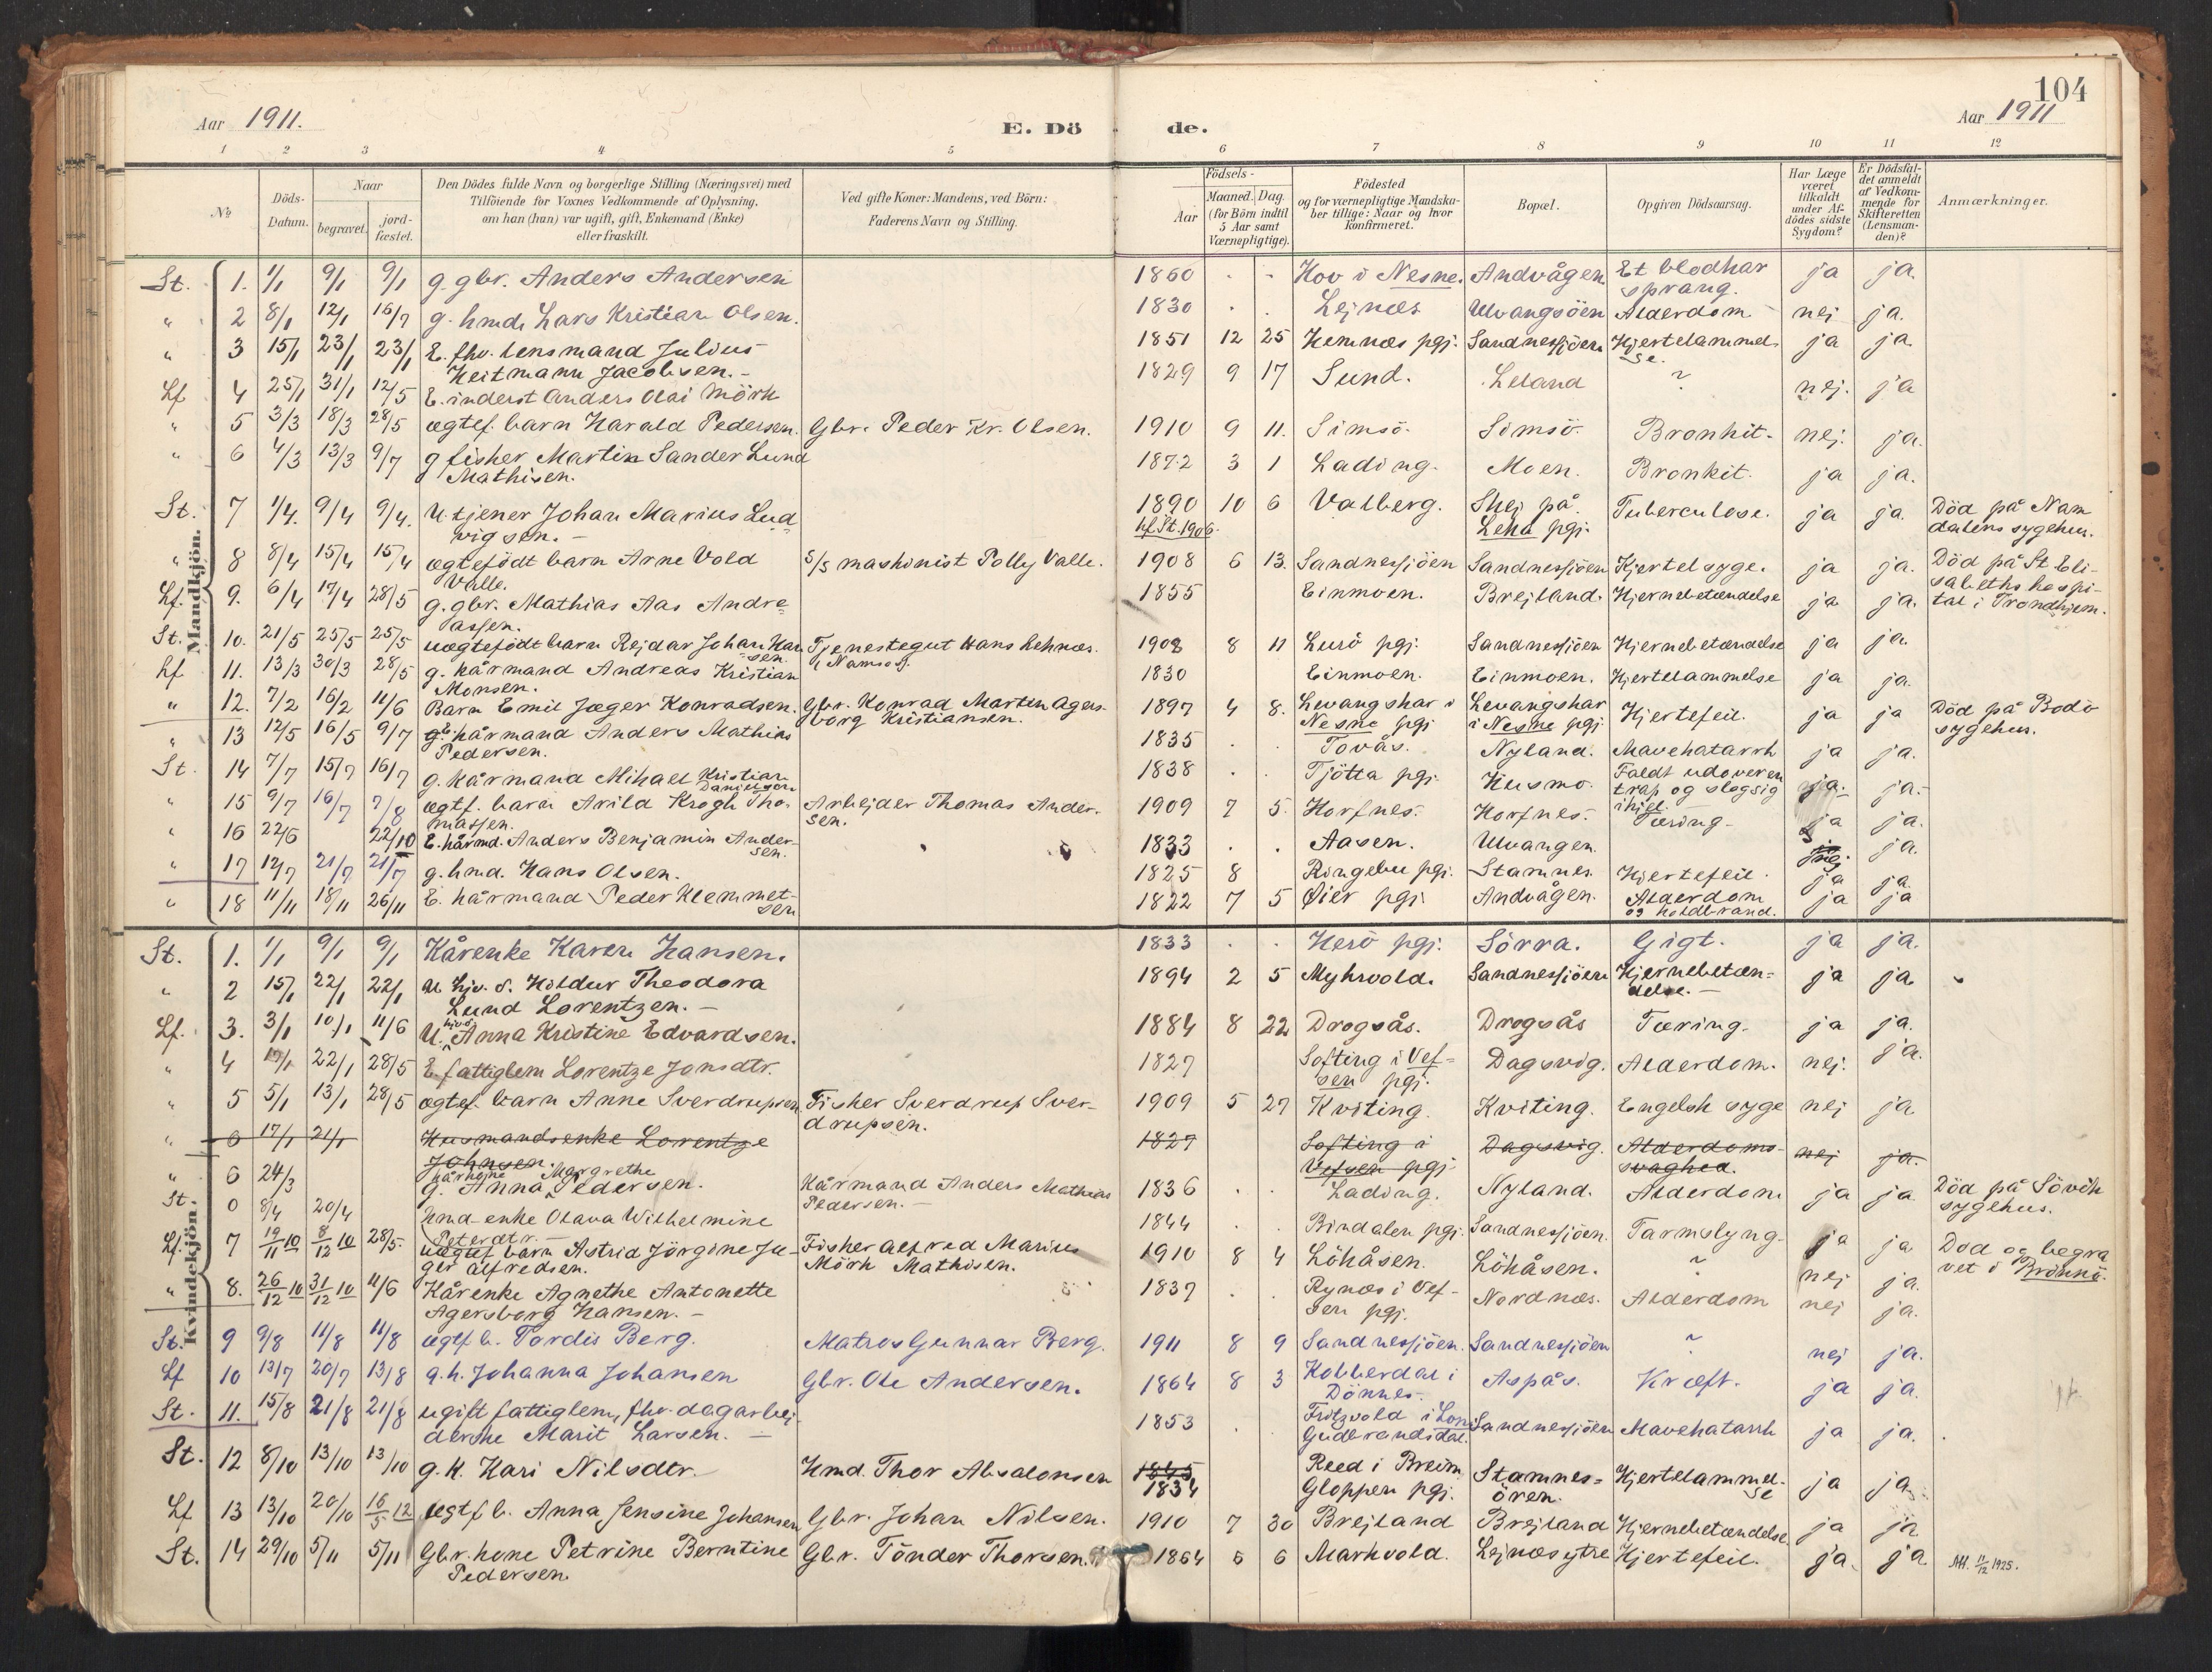 104
Aar 1911.
E. Dö de.
Aar 1911
1 2 3 4 5 6 7 8 9 10 11 12
№
Döds-Datum.
Naar
begravet.
jord-fæstet.
Den Dödes fulde Navn og borgerlige Stilling (Næringsvei) med
Tilföiende for Voxnes Vedkommende af Oplysning,
om han (hun) var ugift, gift, Enkemand (Enke)
eller fraskilt.
Ved gifte Koner: Mandens, ved Börn:
Faderens Navn og Stilling.
Födsels-
Aar
Maaned. Dag.
(for Börn indtil
5 Aar samt
Værnepligtige).
Födested
og for værnepligtige Mandska-
ber tillige: Naar og hvor
konfirmeret.
Bopæl.
Opgiven Dödsaarsag.
Har Læge
været
tilkaldt
under Af-
dödes sidste
Sygdom?
Er Dödsfal-
det anmeldt
af Vedkom-
mende for
Skifteretten
(Lensman-
den)?
Anmærkninger.
Mandkjön.
St. 1. 1/1 9/1 9/1 g. gbr. Anders Andersen 1860 . - Hov i Nesne. Andvågen Et blodkar ja ja.
sprang.
" 2 8/1 12/1 16/7 g. hmd. Lars Kristian Olsen. 1830 . . Lejnæs Ulvangsöen Alderdom nej ja.
" 3 15/1 23/1 23/1 E. fhv. lensmand Julius 1851 12 25 Hemnæs pgj. Sandnessjöen Hjertelammel- ja ja
Heitmann Jacobsen. - se.
Lf 4 25/1 31/1 12/5 E. inderst Anders Olai Mörk 1829 9 17 Sund. Leland ? nej. ja
" 5 3/3 18/3 28/5 ægtef. barn Harald Pedersen. Gbr. Peder Kr. Olsen. 1910 9 11. Simsö. Simsö. Bronkit. nej. ja.
" 6 4/3 13/3 9/7 g fisker Martin Sander Lund 1872 3 1 Lading. Moen. Bronkit. ja ja.
Mathisen.
St. 7 1/4. 9/4 9/4. U. tjener Johan Marius Lud 1890 10 6 Valberg. Skej på Tuberculose. ja ja. Död på Nam
vigsen. - kf. St. 1906. Leka pgj. dalens sygehus.
" 8 8/4 15/4 15/4 ægtefödt barn Arne Vold S/S maskinist Polly Valle. 1908 6 13. Sandnessjöen Sandnessjöen Kjertelsyge. ja ja. Död på St. Eli-
Valle. sabeths hospi-
Lf. 9. 6/4 17/4 28/5 g. gbr. Mathias Aas Andre 1855 Einmoen. Brejland. Hjernebetændelse ja ja. tal i Trondhjem.
assen.
St. 10. 21/5 25/5 25/5 uægtefödt barn Rejdar Johan Han Tjenestegut Hans Leknæs. 1908 8 11 Lurö pgj. Sandnessjöen Hjernebetændelse ja ja.
sen. i Namsos.
Lf 11. 13/3 30/3 28/5 g. kårmand Andreas Kristian 1830 Einmoen. Einmoen. Hjertelammelse ja ja.
Monsen.
" 12. 7/2 16/2 11/6 Barn Emil Jæger Konradsen. Gbr. Konrad Martin Agers- 1897 4 8. Levangskar i Levangskar Hjertefeil. ja ja Död på Bodö
borg Kristiansen. Nesne pgj i Nesne pgj sygehus.
" 13 12/5 16/5 9/7 g. kårmand Anders Mathias 1835 . . Tovås. Nyland. Mavekatarrh ja ja.
Pedersen.
St. 14 7/7 15/7 16/7 g. kårmand Mikael Kristian 1838 . . Tjötta pgj. Husmo. Faldt udover en ja. ja.
Danielsen trap og slog sig
ihjel.
" 15 9/7 16/7 7/8 ægtf. barn Arild Krogh Tho- Arbejder Thomas Ander- 1909 7 5. Horfnes. Horfnes. Tæring. ja ja.
massen. sen.
" 16 22/6 22/10 E. kårmd. Anders Benjamin Ander- 1833 . . Aasen. Ulvangen. nej. ja.
sen.
" 17 12/7 21/7 21/7 g. hmd. Hans Olsen. 1825 8 Ringebu pgj. Stamnes. Hjertefeil. ja ja.
" 18 11/11 18/11 26/11 E. kårmand Peder Klemmet- 1822 7 5 Øier pgj. Andvågen. Alderdom ja ja
sen og koldbrand.
Kvindekjön.
St. 1. 1/1 9/1 9/1 Kårenke Karen Hansen. 1833 . . Herö pgj. Sörra. Gigt. ja ja.
" 2 15/1 22/1 22/1 U. hjv. d. Hildur Theodora 1894 2 5 Myhrvold. Sandnessjöen Hjernebetæn- ja ja.
Lund Lorentzen. - delse. -
Lf. 3. 3/1 10/1 11/6 U. Anna Kristine Edvardsen. 1884 8 22 Drogsås. Drogsås Tæring. ja ja.
" 4 19/1 22/1 28/5 E. fattiglem Lorentze Jonsdtr. 1827 Softing i Vef- Dagsvig. Alderdom. nej. ja.
sen pgj.
" 5 5/1 13/1 28/5 ægtef. barn Anne Sverdrupsen Fisker Sverdrup Sver- 1909 5 27 Kviting. Kviting. Engelsk syge nej ja.
drupsen.
" 6 17/1 21/1 Husmandsenke Lorentze 1827 Softing i Dagsvig. Alderdoms- nej ja.
Johnsen. Vefsen pgj svaghed.
" 6 24/3 g. kårkone Anna Margrethe Pedersen. Kårmand Anders Mathias 1836 . . Lading. Nyland. Alderdom ja ja. Död på Sövik
Pedersen. - sygehus.
St. 0 8/4 20/4 Hmd-enke Olava Wilhelmine 1844 . . Bindalen pgj. Sandnessjöen. Tarmslyng. ja ja
Petersdtr. -
Lf. 7 19/11 10 8/12 10 28/5. uægtef barn Astrid Jörgine Jæ- Fisker Alfred Marius 1910 8 4 Löhåsen. Löhåsen. ? nej ja. Död og begra
ger Alfredsen. Mörk Mathisen. vet i Brönnö.
" 8. 26/12 10 31/12 10 11/6 Kårenke Agnethe Antonette 1837 . . Rynæs i Vef- Nordnæs. Alderdom nej ja.
Agersborg Hansen. - sen pgj.
St. 9 9/8 11/8 11/8 ægtf. b. Tordis Berg. Matros Gunnar Berg. 1911 8 9 Sandnessjöen. Sandnessjöen ? nej ja.
Lf 10 13/7 20/7 13/8 g. k. Johanna Johansen Gbr. Ole Andersen. 1864 8 3 Kobberdal i Aspås. Kræft. ja ja.
Dönnes.
St. 11. 15/8 21/8 21/8 ugift fattiglem, fhv. dagarbej- 1853 . Fritzvold i Lom Sandnessjöen Mavekatarrh ja ja.
derske Marit Larsen. - Gudbrandsdal.
St. 12 8/10 13/10 13/10 g. K. Kari Nilsdtr. Hmd. Thor Absalonsen 1845 Reed i Breim Stamnes- Hjertelammel- ja ja.
1834 Gloppen pgj. ören. se
Lf 13 13/10 20/10 16/5 12 ægtf b. Anna Jensine Johansen Gbr. Johan Nilsen. 1910 7 30 Brejland Brejland Hjernebetændelse ja ja
St. 14 29/10 5/11 5/11 Gbr. kone Petrine Berntine Gbr. Tönder Thorsen. 1864 6 6 Markvold. Lejnæs ytre Hjertefeil. ja. ja Att. 11/12 1925.
Pedersen.